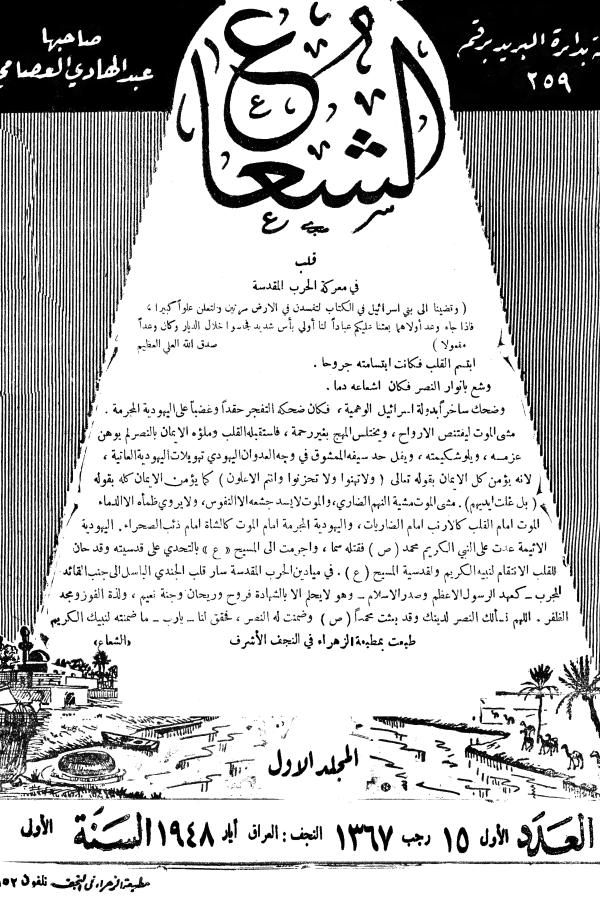 صاحبها
عبد الهادي العصامي
ة بدائرة البريد برقم
٢٥٩
الشعاع
قلب
في معركة الحرب المقدسة
( وقضينا الى بني اسرائيل في الكتاب لتفسدن في الارض مرتين ولتعلن علواً كبيرا ،
فاذا جاء وعد أولاهما بعثنا عليكم عباداً لنا أولي بأس شديد فجاسوا خلال الديار وكان وعداً
مفعولا ) صدق الله العلي العظيم
ابتسم القلب فكانت ابتسامته جروحا .
وشع بانوار النصر فكان اشعاعه دما .
وضحك ساخراً بدولة اسرائيل الوهمية ، فكان ضحكه التفجر حقداً وغضباً على اليهودية المجرمة .
مشى الموت ليقتنص الارواح ، ويختلس المهج بغير رحمة ، فاستقبله القلب وملؤه الايمان بالنصر لم يوهن
عزمه ، ويلو شكيمته ، ويفل حد سيفه الممشوق في وجه العدوان اليهودي تهويلات اليهودية العاتية ،
لانه يؤمن كل الايمان بقوله تعالى ( ولا تهنوا ولا تحزنوا وانتم الاعلون ) كما يؤمن الايمان كله بقوله
( بل غلت ايديهم ) . مشى الموت مشية النهم الضاري ، والموت لا يسد جشعه الا النفوس ، ولا يروي ظمأه الا الدماء
الموت امام القلب كالارنب امام الضاريات ، واليهودية المجرمة امام الموت كالشاة امام ذئب الصحراء . اليهودية
الاثيمة عدت على النبي الكريم محمد ( ص ) فقتله سما ، واجرمت الى المسيح « ع » بالتحدي على قدسيته وقد حان
للقلب الانتقام لنبيه الكريم ولقدسية المسيح ( ع ) . في ميادين الحرب المقدسة سار قلب الجندي الباسل الى جنب القائد
المجرب ـ كعهد الرسول الاعظم وصدر الاسلام ـ وهو لا يحلم الا بالشهادة فروح وريحان وجنة نعيم ، ولذة الفوز ومجد
الظفر . اللهم نسألك النصر لدينك وقد بعثت محمداً ( ص ) وضمنت له النصر ، فحقق لنا ـ يارب ـ ما ضمنته لنبيك الكريم
طبعت بمطبعة الزهراء في النجف الأشرف «الشعاع»
المجلد الاول
العدد الأول ١٥ رجب ١٣٦٧ النجف : العراق أيار ١٩٤٨ السنة الأولى
مطبعة الزهراء في النجف تلفون ١٥٢